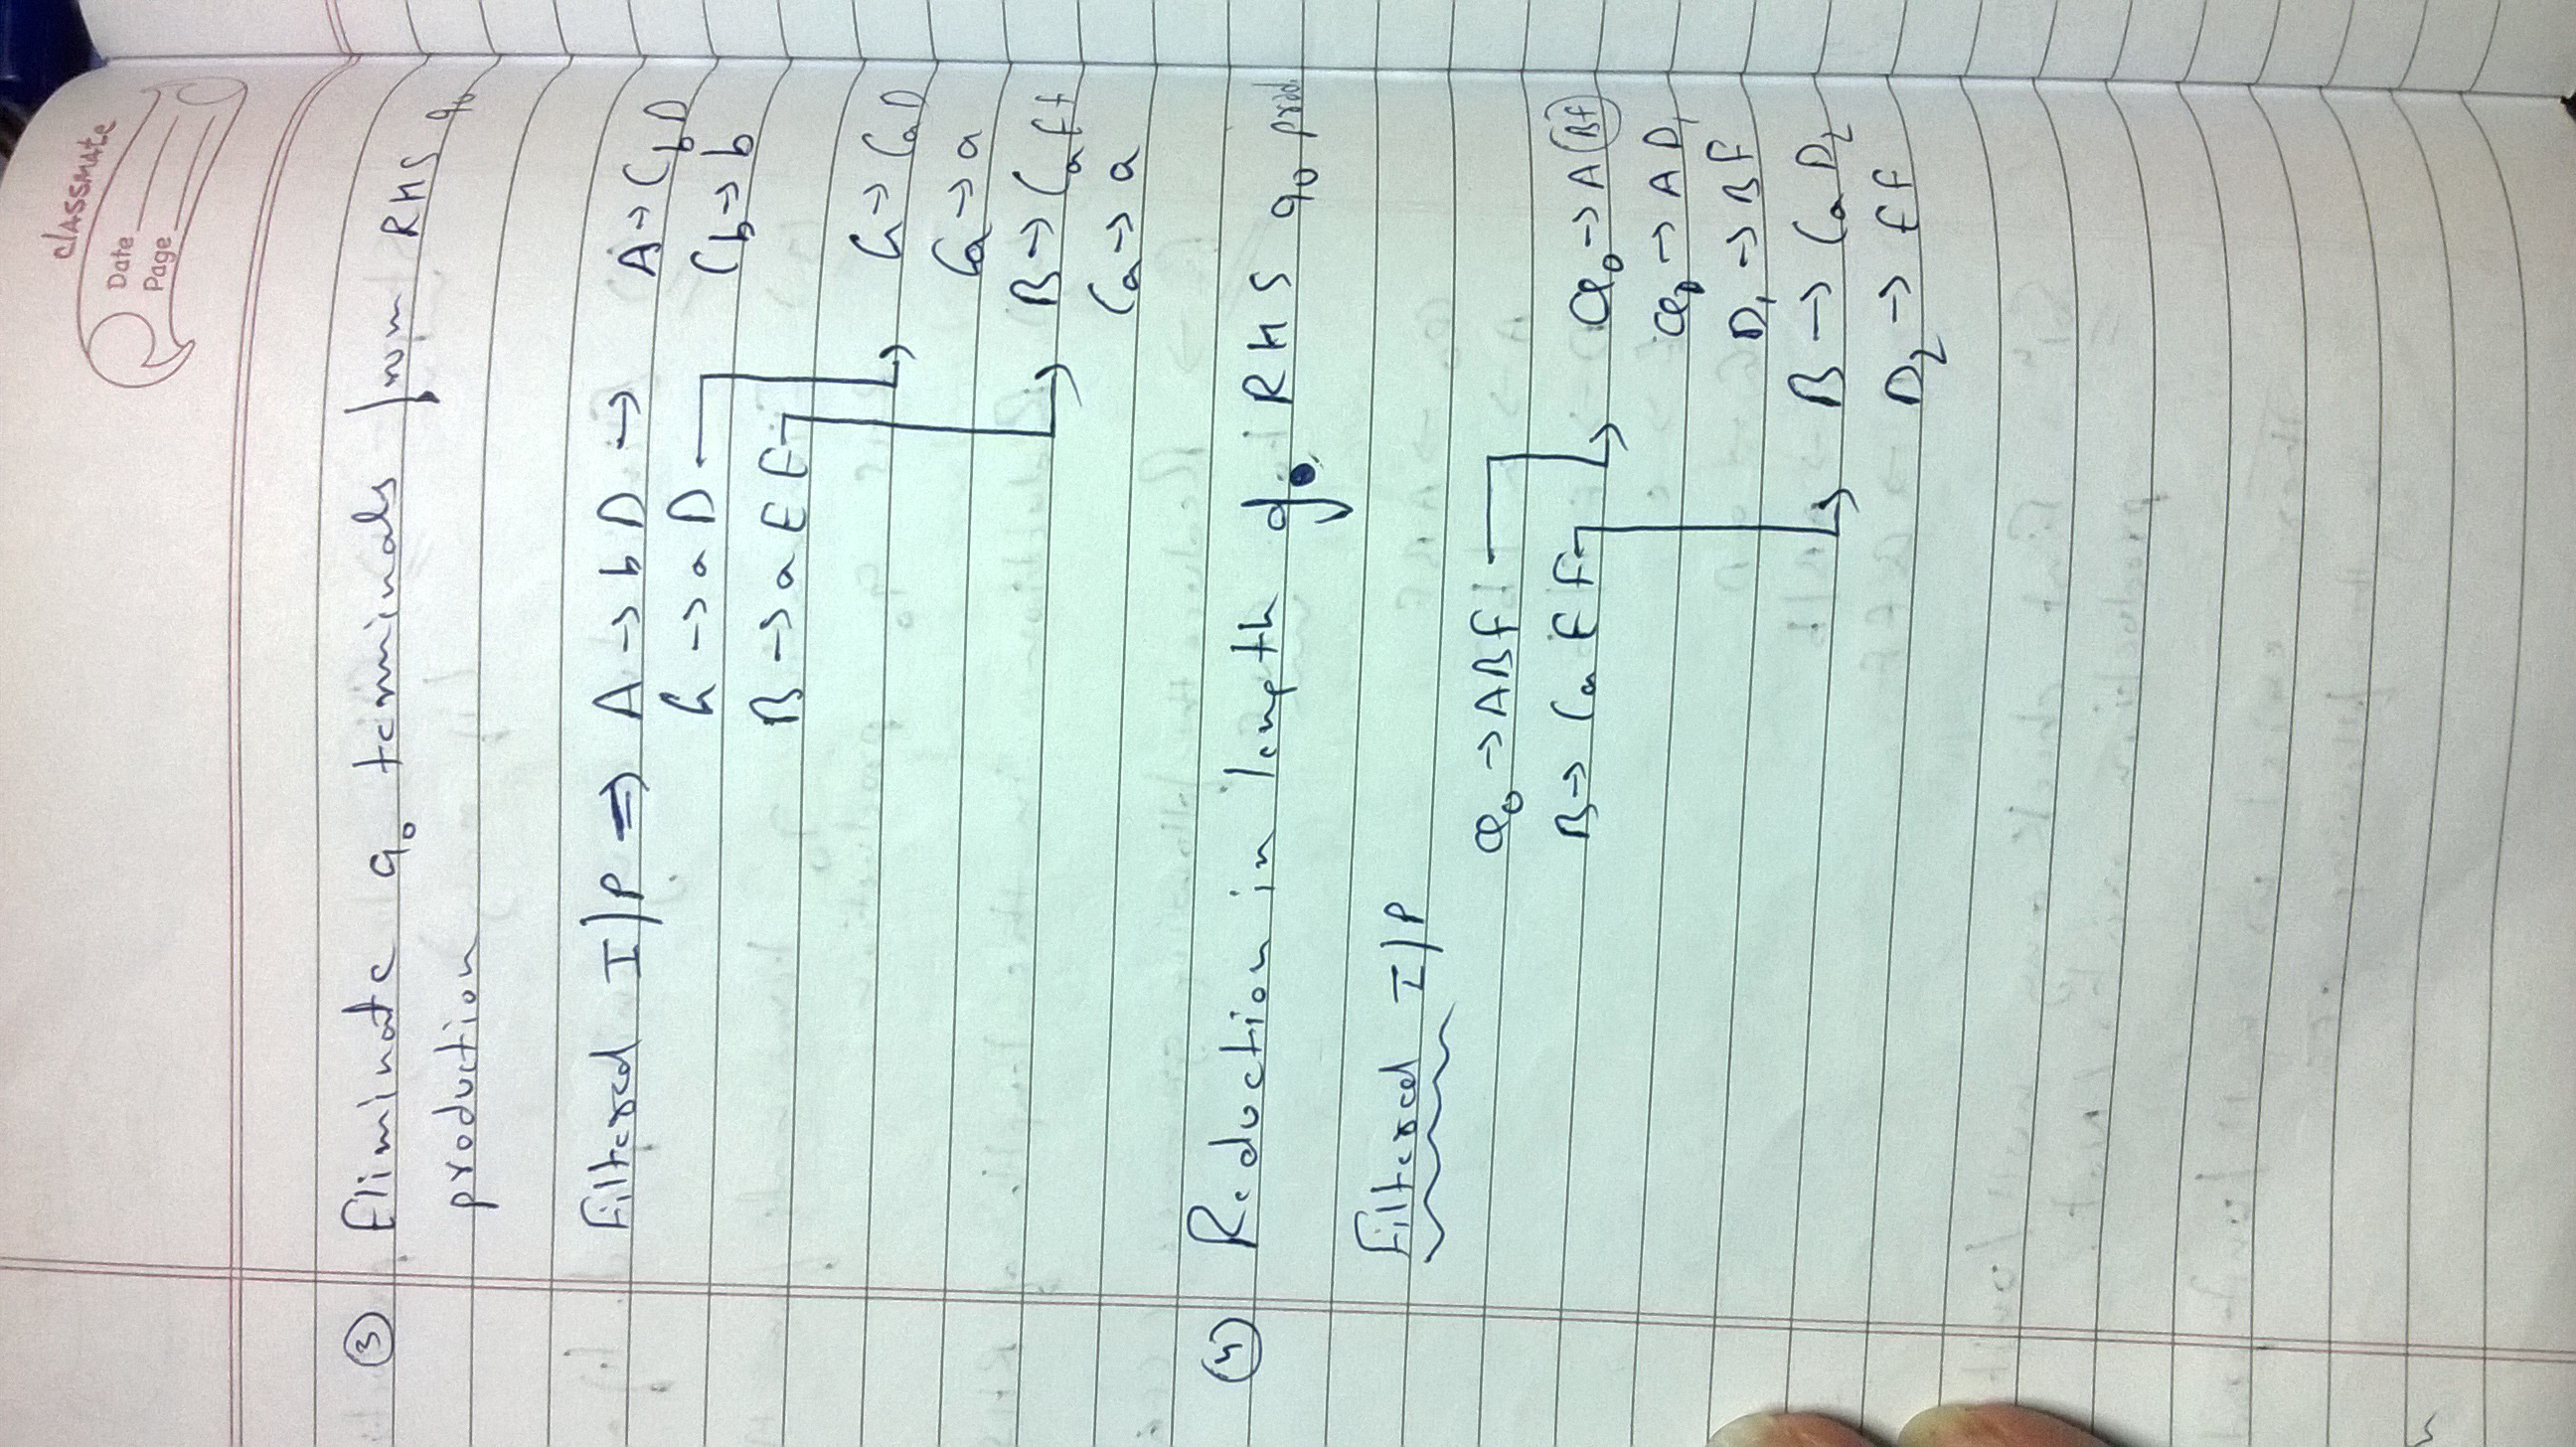 classmate
Date
Page
③ Eliminate of terminals from RHS of
production
Filtered I/P ⇒ A → bD → A → C_b D
G → aD C_b → b
B → aEF
G → C_a D
C_a → a
B → C_a EF
C_a → a
④ Reduction in length of RHS of prod.
Filtered I/P
Q₀ → ABF
B → C_a EF Q₀ → A(BF)
Q₀ → AD₁
D₁ → BF
B → C_a D₂
D₂ → EF